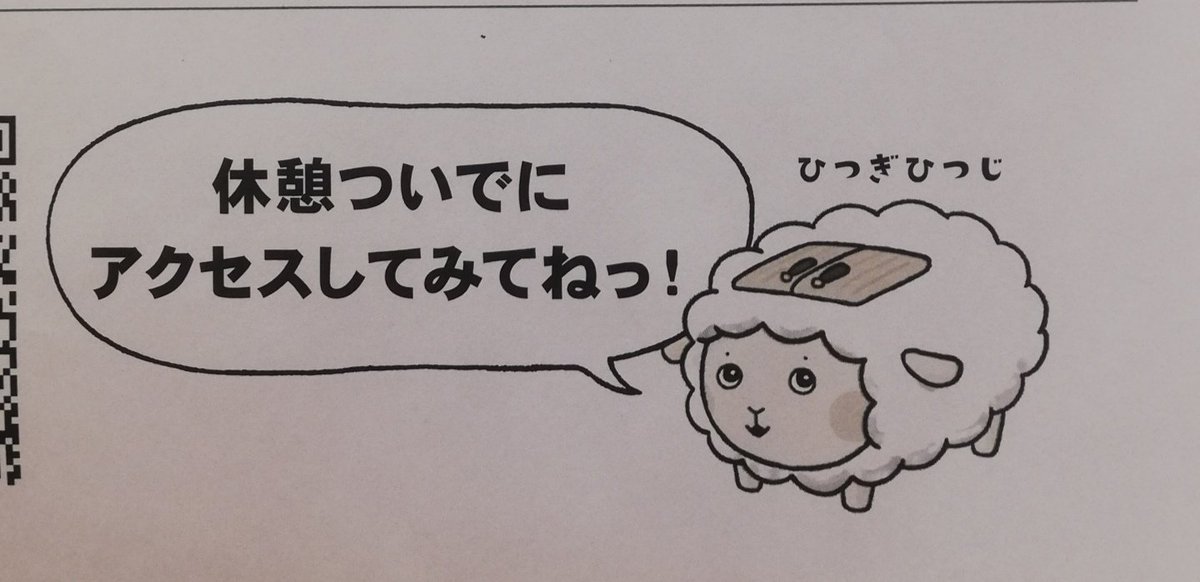 休憩ついでに
アクセスしてみてねっ!
ひつぎひつじ